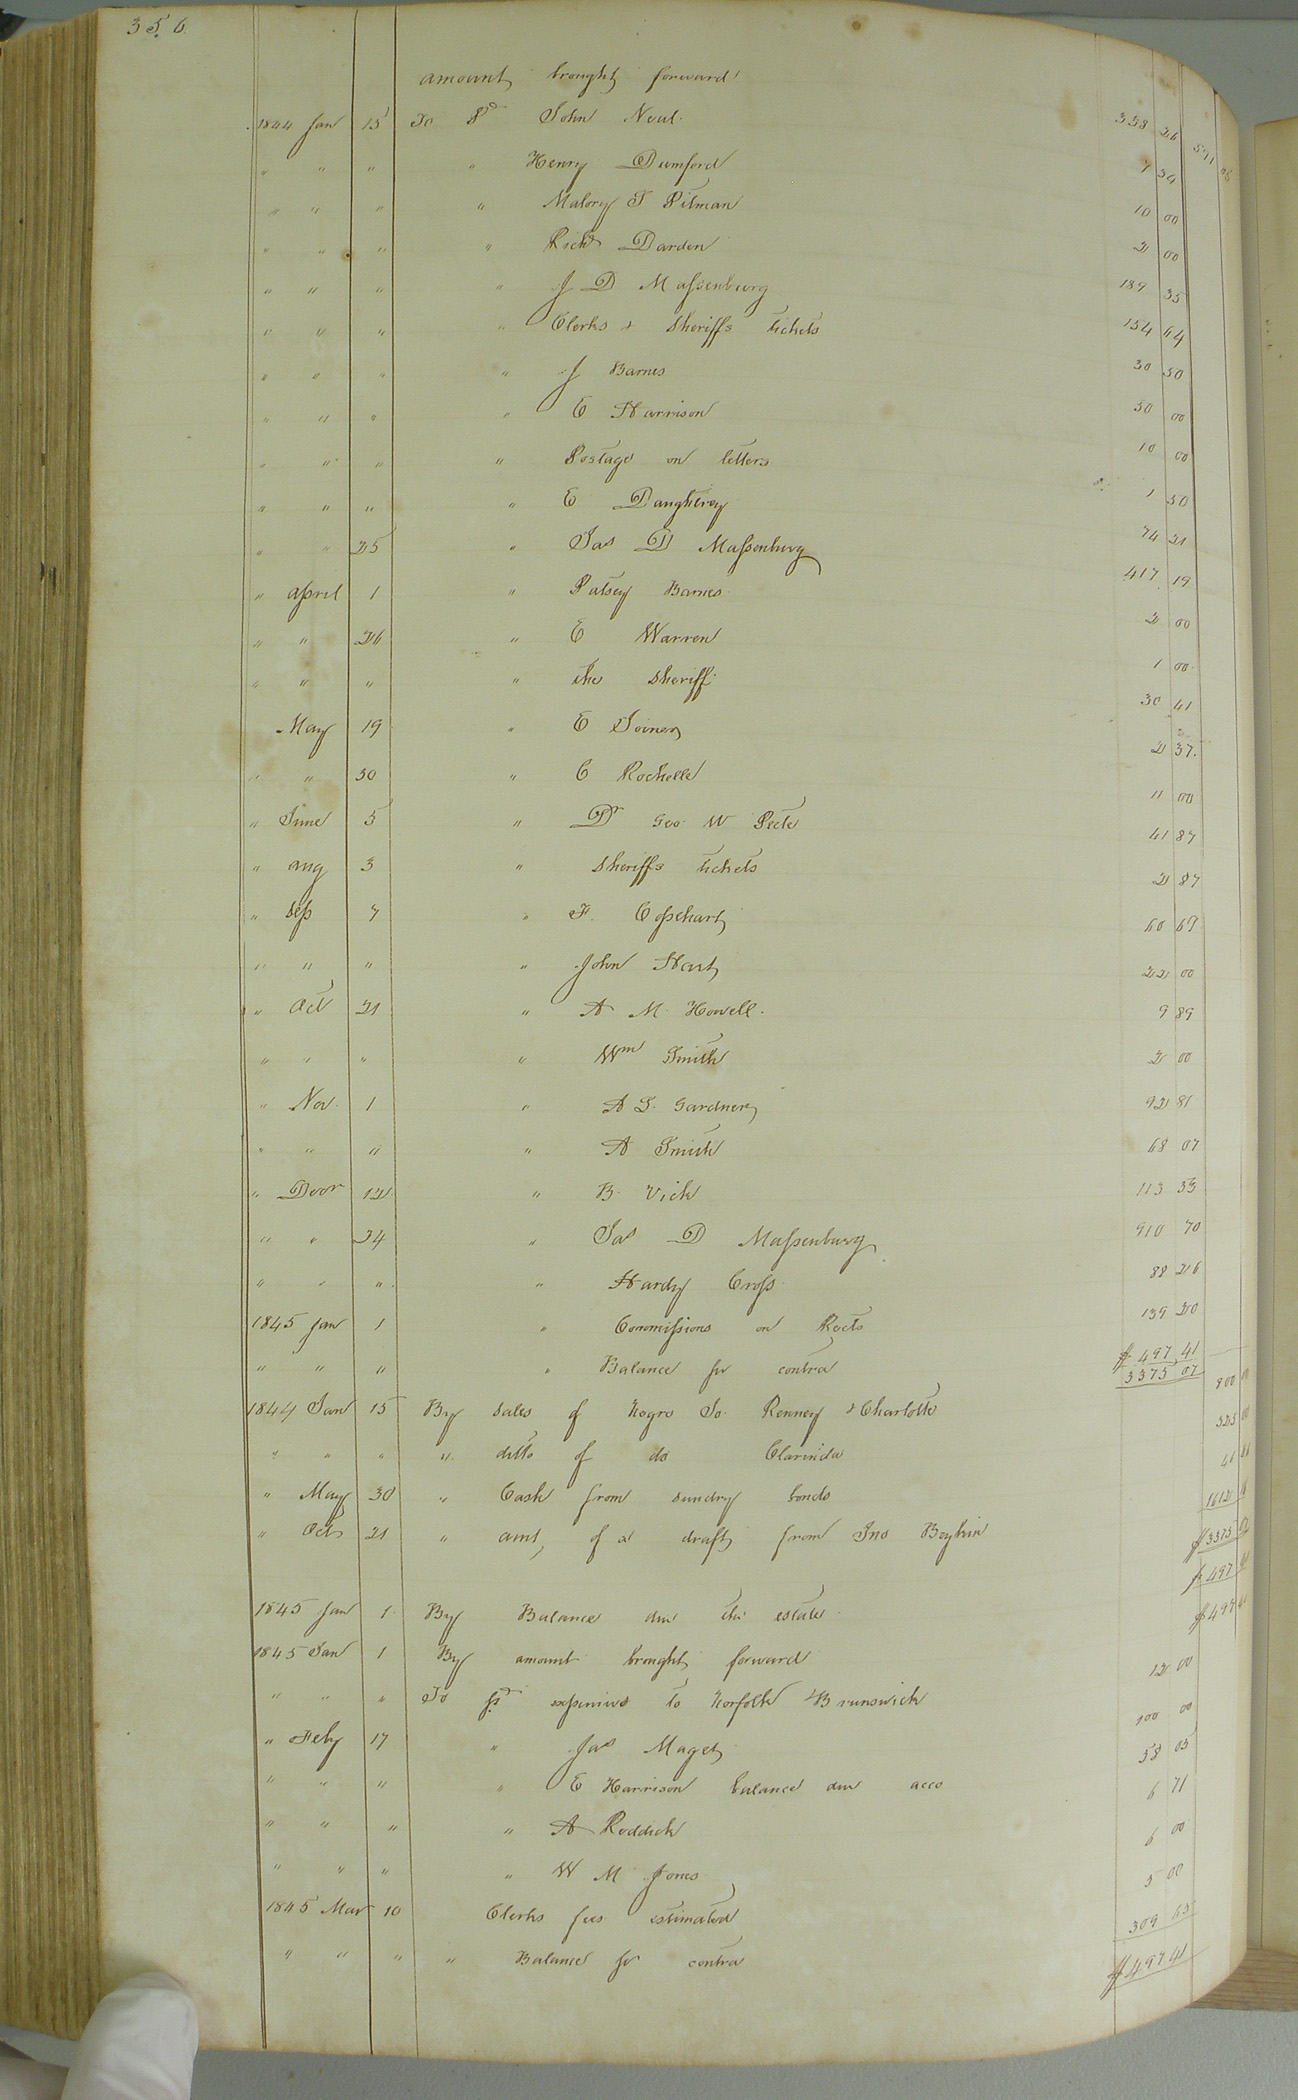 356.
amount brought forward 591
1844 Jan 15 To Pd John Neal. 338 26
" " " " Henry Dumford 7 54
" " " " Malory T Pitman 10 00
" " " " Richd Darden 2 00
" " " " J D Massenburg 189 35
" " " " Clerks & Sheriffs tickets 154 64
" " " " J Barnes 30 50
" " " " E Harrison 50 00
" " " " Postage on letters 10 00
" " " " E Daughtrey 1 50
" " 25 " Jas D Massenburg 74 21
" April 1 " Patsey Barnes 417 19
" " 26 " E Warren 2 00
" " " " the Sheriff 1 00
May 19 " E Joiner 30 41
" " 30 " C Rochelle 2 37.
" June 5 " Dr Geo W Peete 11 00
" Aug 3 " Sheriffs tickets 41 87
" Sep 7 " F. 2 87
" " " " John Hart 60 69
" Oct 21 " A M Howell. 22 00
" " " " Wm Smith 9 89
" Nov. 1 " A S. Gardner 2 00
" " " " A Smith 92 81
" Decr 12 " B. Vick 68 07
" " 24 " Jas D Massenburg 113 33
" " " " Hardy Cross 910 70
1845 Jan 1 " Commissions on Rects 88 26
" " " " Balance pr contra 139 20
$ 497 41
3375 07
1844 Jan 15 By Sales of Negro Jo. Renney & Charlotte 800
" " " " ditto of do Clarinda 525 00
" May 30 " Cash from sundry bonds 41
" Oct 21 " amt, of a draft from Jno Boykin 1612
$ 3375 07
1845 Jan 1 By Balance due the estate $ 497 41
1845 Jan 1 By amount brought forward $ 497 41
" " " To pd expenses to Norfolk & Brunswick 12 00
" Feby 17 " Jas Maget 100 00
" " " " E Harrison balance due acco 58 05
" " " " A Reddick 6 71
" " " " W M Jones 6 00
1845 Mar 10 Clerks fees estimated 5 00
" " " " Balance pr contra 309 65
$ 497 41